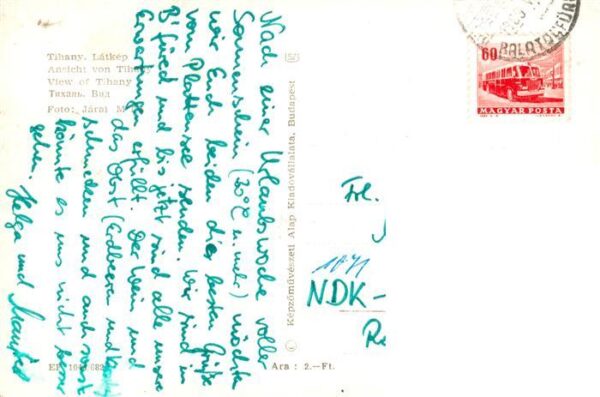 Tihany. Látkép
Ansicht von Tihany
View of Tihany
Тихань. Вид
Foto: Járai
Nach einer Urlaubswoche voller
Sonnenschein (30°C u. mehr) möchten
wir Euch beiden die besten Grüße
vom Plattensee senden. Wir sind in
B'füred und bis jetzt sind alle unsere
Erwartungen erfüllt. Der Wein und
das Obst (Erdbeeren und
schmecken und auch sonst
könnte es uns nicht besser
gehen. Helga und Manfred
Képzőművészeti Alap Kiadóvállalata, Budapest
Ára: 2.-Ft.
60
MAGYAR POSTA
BALATONFÜRED
Frl.
NDK-